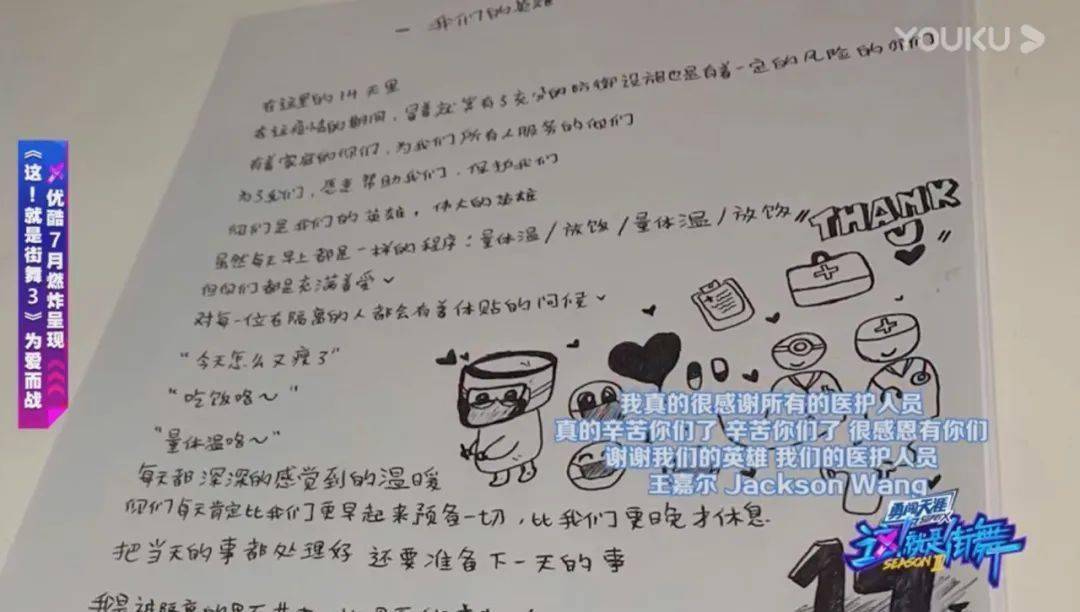 一 我们的英雄
YOUKU
在这里的14天里
在这疫情的期间，冒着就算有了充分的防御设施也是有着一定的风险的你们
有着家庭的你们，为我们所有人服务的你们
为了我们，愿意帮助我们，保护我们
你们是我们的英雄，伟大的英雄
虽然每天早上都是一样的程序：量体温/放饭/量体温/放饭
但你们都是充满着爱
对每一位在隔离的人都会有着体贴的问候
“今天怎么又瘦了”
“吃饭咯～”
“量体温咯～”
每天都深深的感觉到的温暖
你们每天肯定比我们更早起来预备一切，比我们更晚才休息
把当天的事都处理好 还要准备下一天的事
"THANK
U"
14
优酷7月燃炸呈现
《这！就是街舞3》为爱而战
我真的很感谢所有的医护人员
真的辛苦你们了 辛苦你们了 很感恩有你们
谢谢我们的英雄 我们的医护人员
王嘉尔 Jackson Wang
勇闯天涯
这！就是街舞
SEASON III